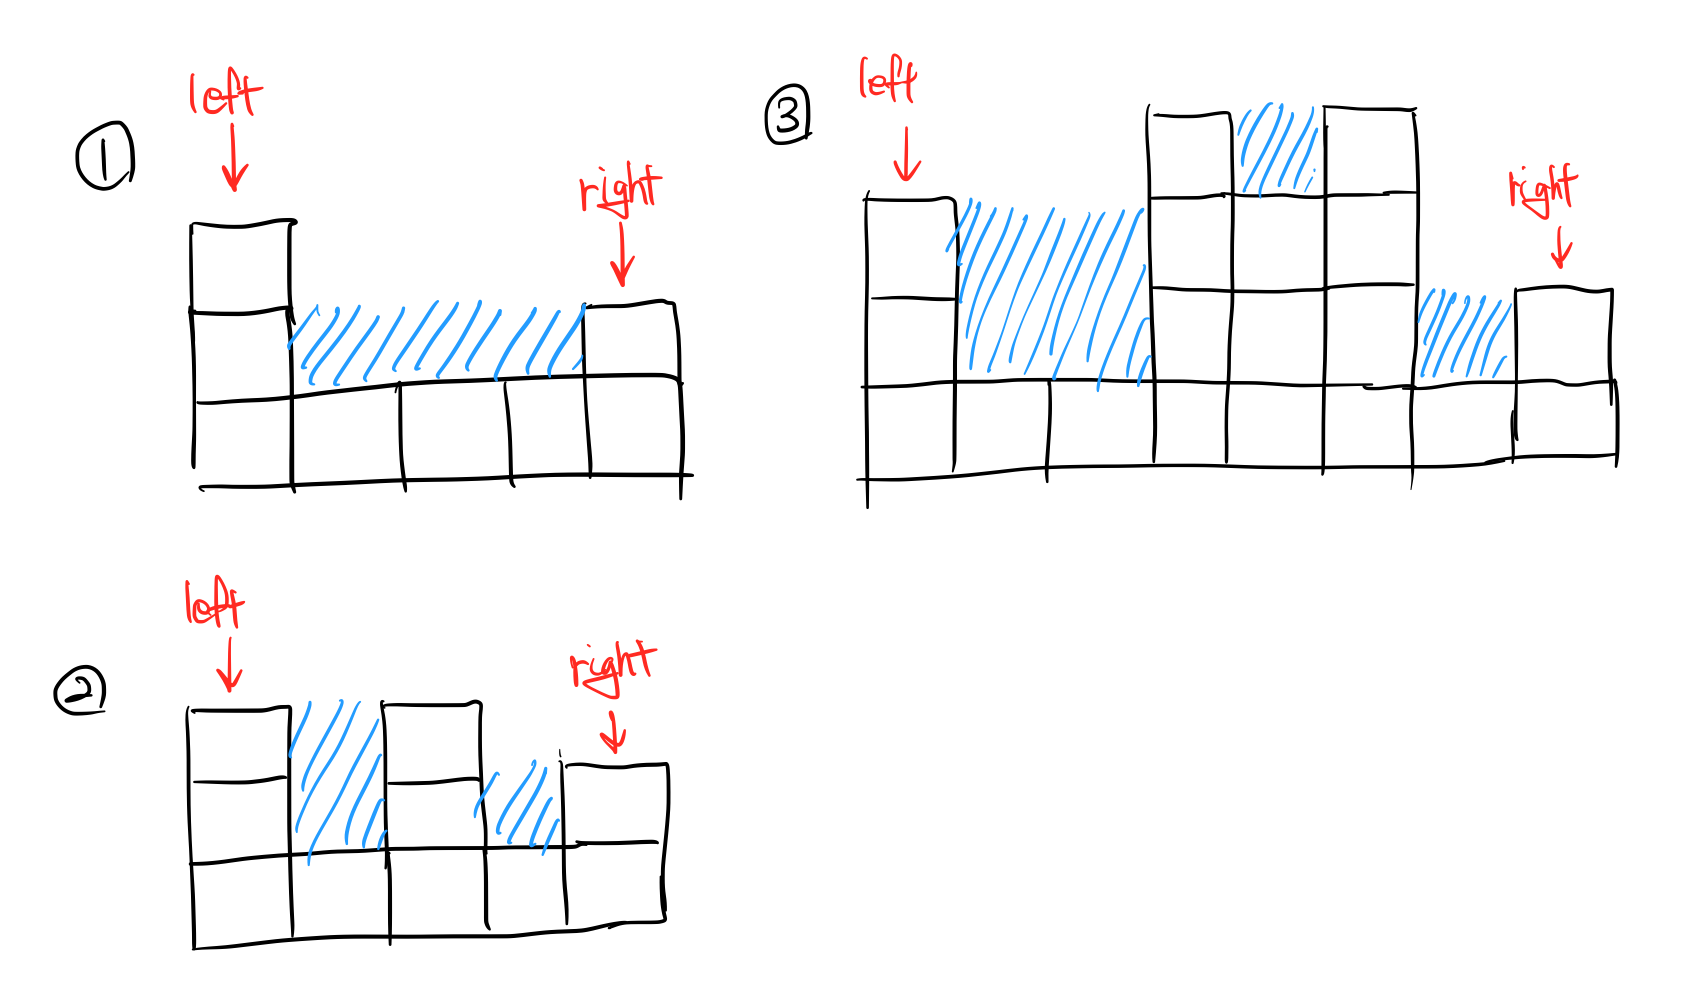 ①
left
right
②
left
right
③
left
right